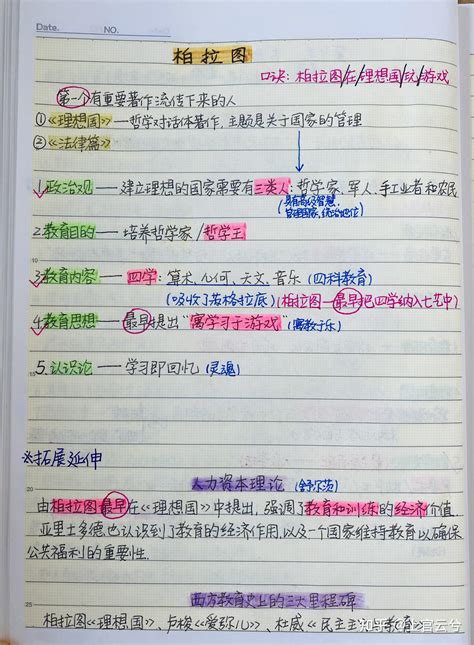 Date.      NO.
柏拉图
口诀：柏拉图/在/理想国/玩/游戏
第一个有重要著作流传下来的人
①《理想国》—哲学对话体著作，主题是关于国家的管理
②《法律篇》
1.政治观——建立理想的国家需要有三类人：哲学家、军人、手工业者和农民
(具有高级智慧，
管理国家，统治地位)
2.教育目的——培养哲学家/哲学王
3.教育内容——四学：算术、几何、天文、音乐 (四科教育)
(吸收了苏格拉底)(柏拉图—最早把四学纳入七艺中)
4.教育思想——最早提出“寓学习于游戏”(寓教于乐)
5.认识论——学习即回忆 (灵魂)
※拓展延伸
人力资本理论 (舒尔茨)
由柏拉图最早在《理想国》中提出，强调了教育和训练的经济价值
亚里士多德也认识到了教育的经济作用，以及一个国家维持教育以确保
公共福利的重要性.
西方教育史上的三大里程碑
柏拉图《理想国》、卢梭《爱弥儿》、杜威《民主主义与教育
知乎 @上官云兮